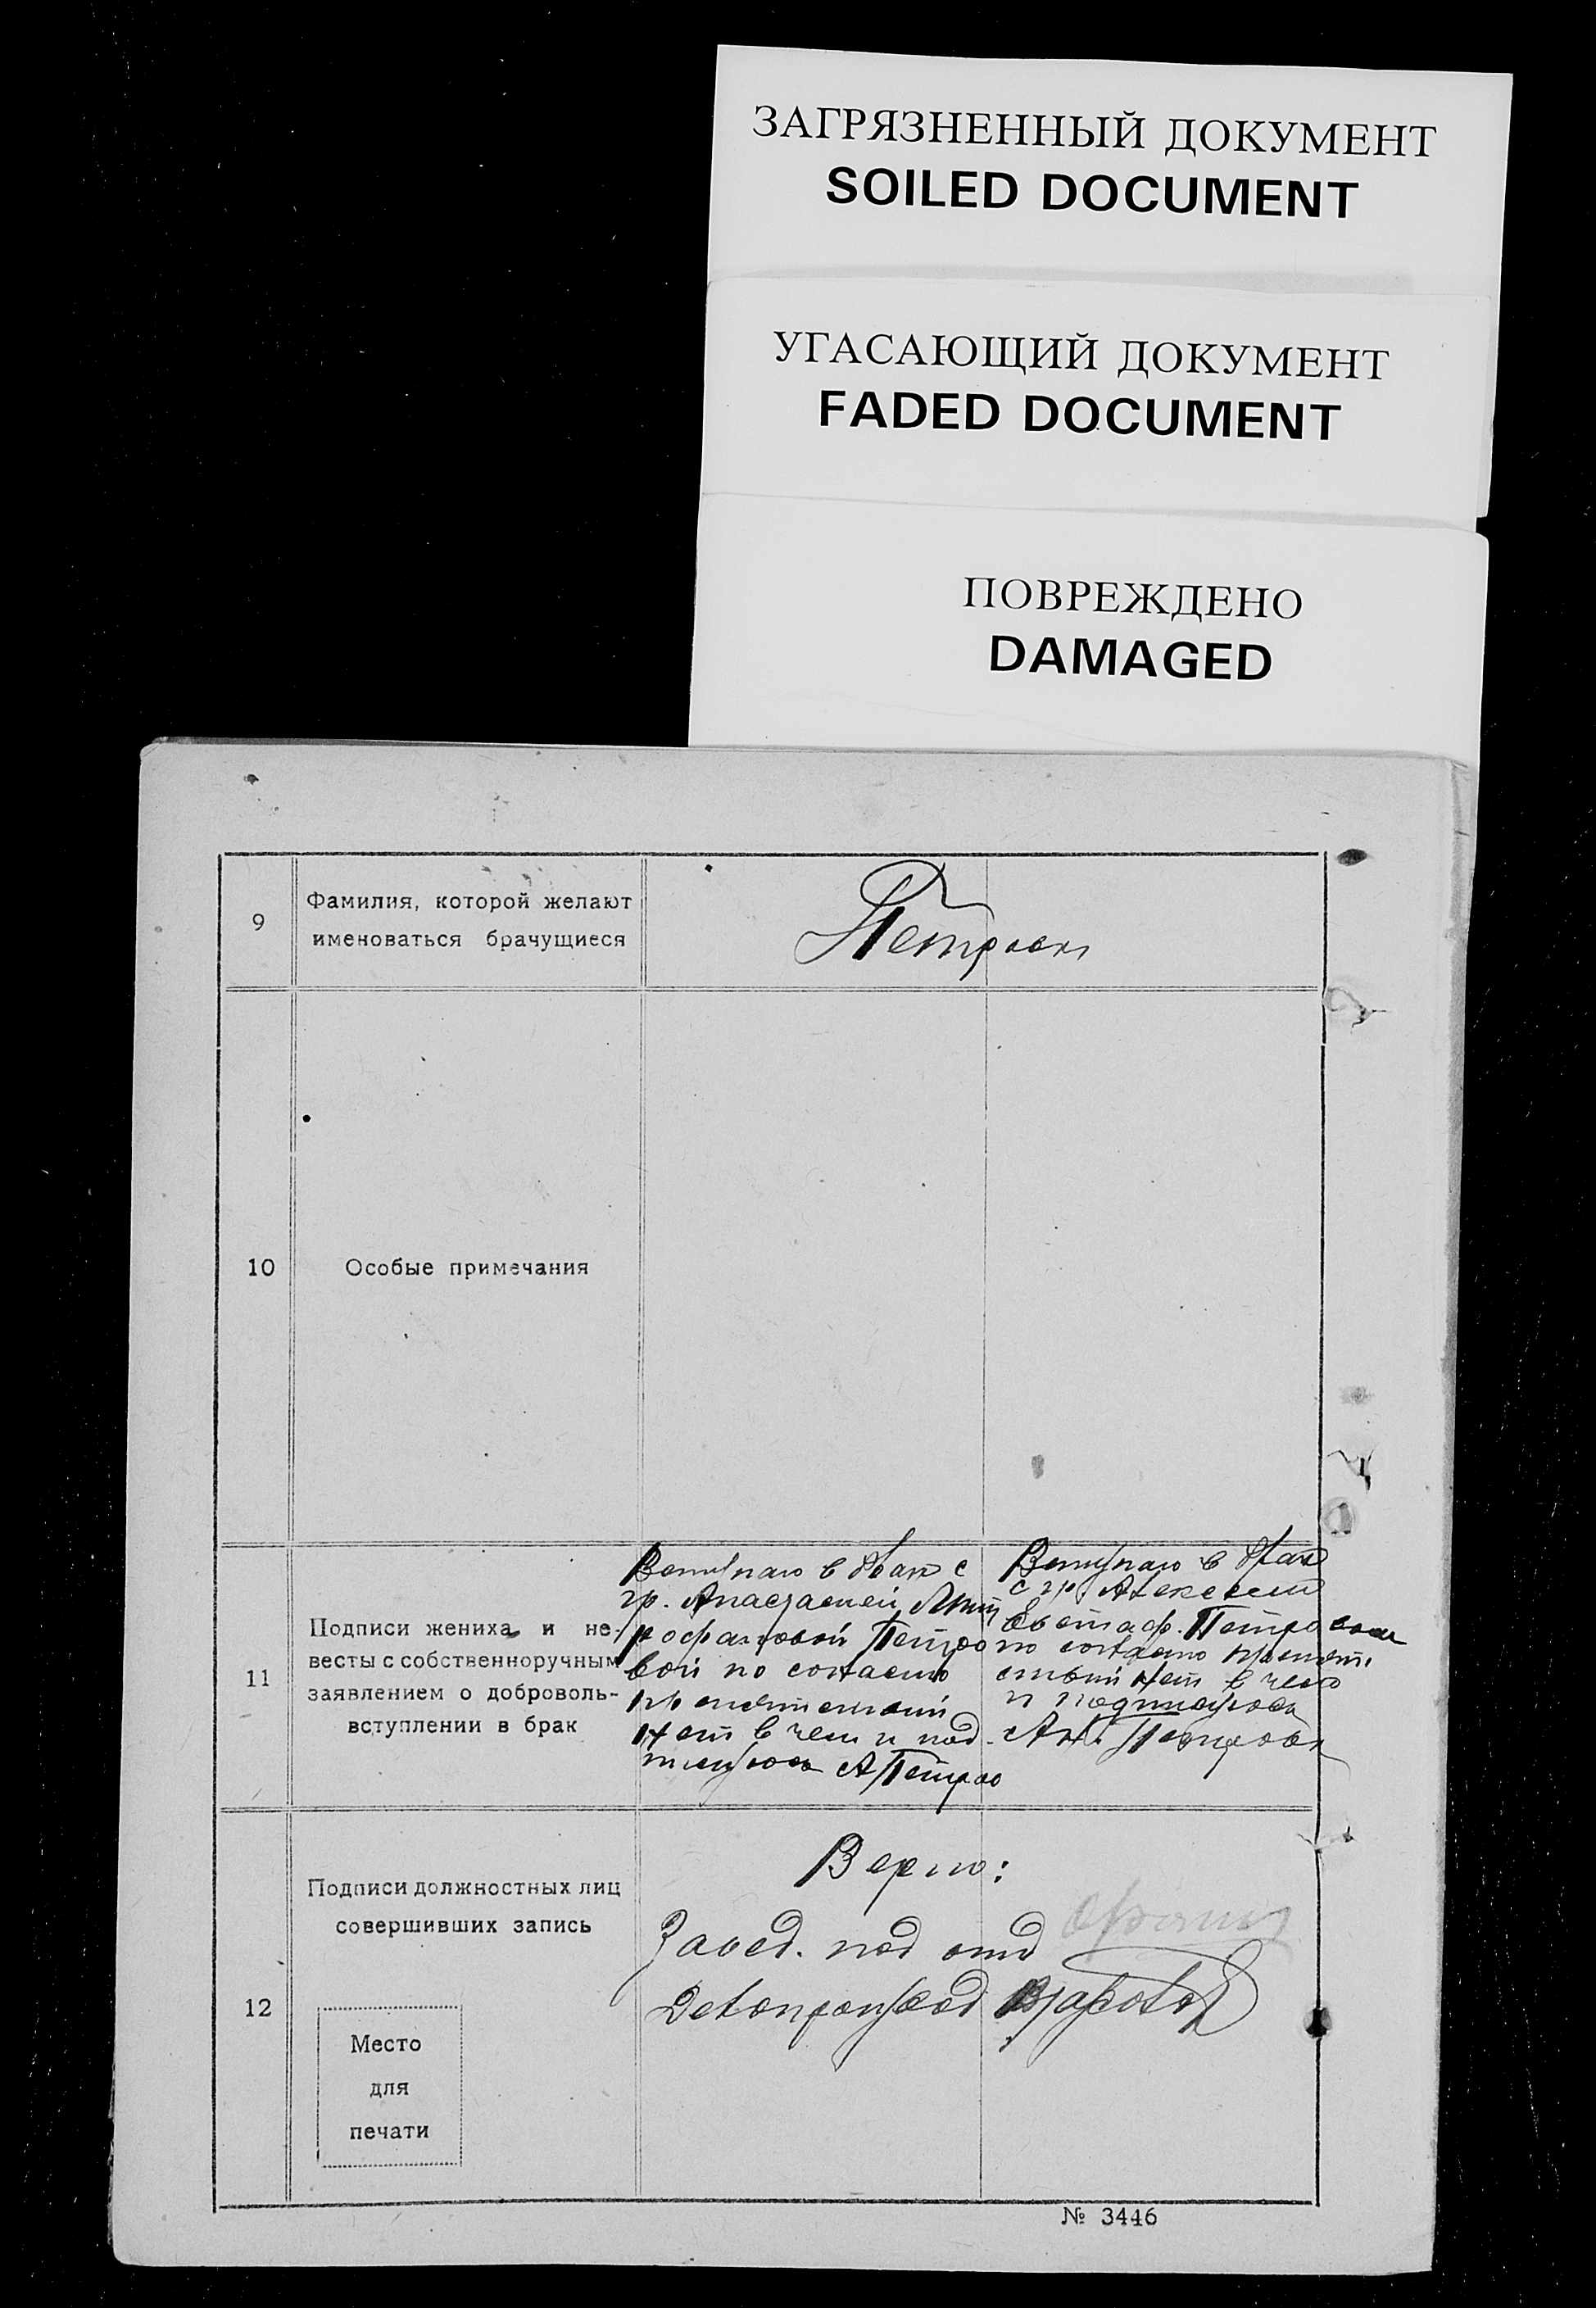 ЗАГРЯЗНЕННЫЙ ДОКУМЕНТ
SOILED DOCUMENT
УГАСАЮЩИЙ ДОКУМЕНТ
FADED DOCUMENT
ПОВРЕЖДЕНО
DAMAGED
9
Фамилия, которой желают
именоваться брачущиеся
Петровы
10
Особые примечания
11
Подписи жениха и не-
весты с собственноручным
заявлением о доброволь-
вступлении в брак
Вступаю в брак с
гр. Анастасией Мит
рофановой Петро
вой по согласию
препятствий
нет в чем и под
писуюсь АПетров
Вступаю в брак
с гр. Алексеем
Евстаф. Петровым
по согласию препят
ствий нет в чем
и подписуюсь
Ан. Петрова
12
Подписи должностных лиц
совершивших запись
Место
для
печати
Верно:
Завед. под отд
Делопроизвод
№ 3446